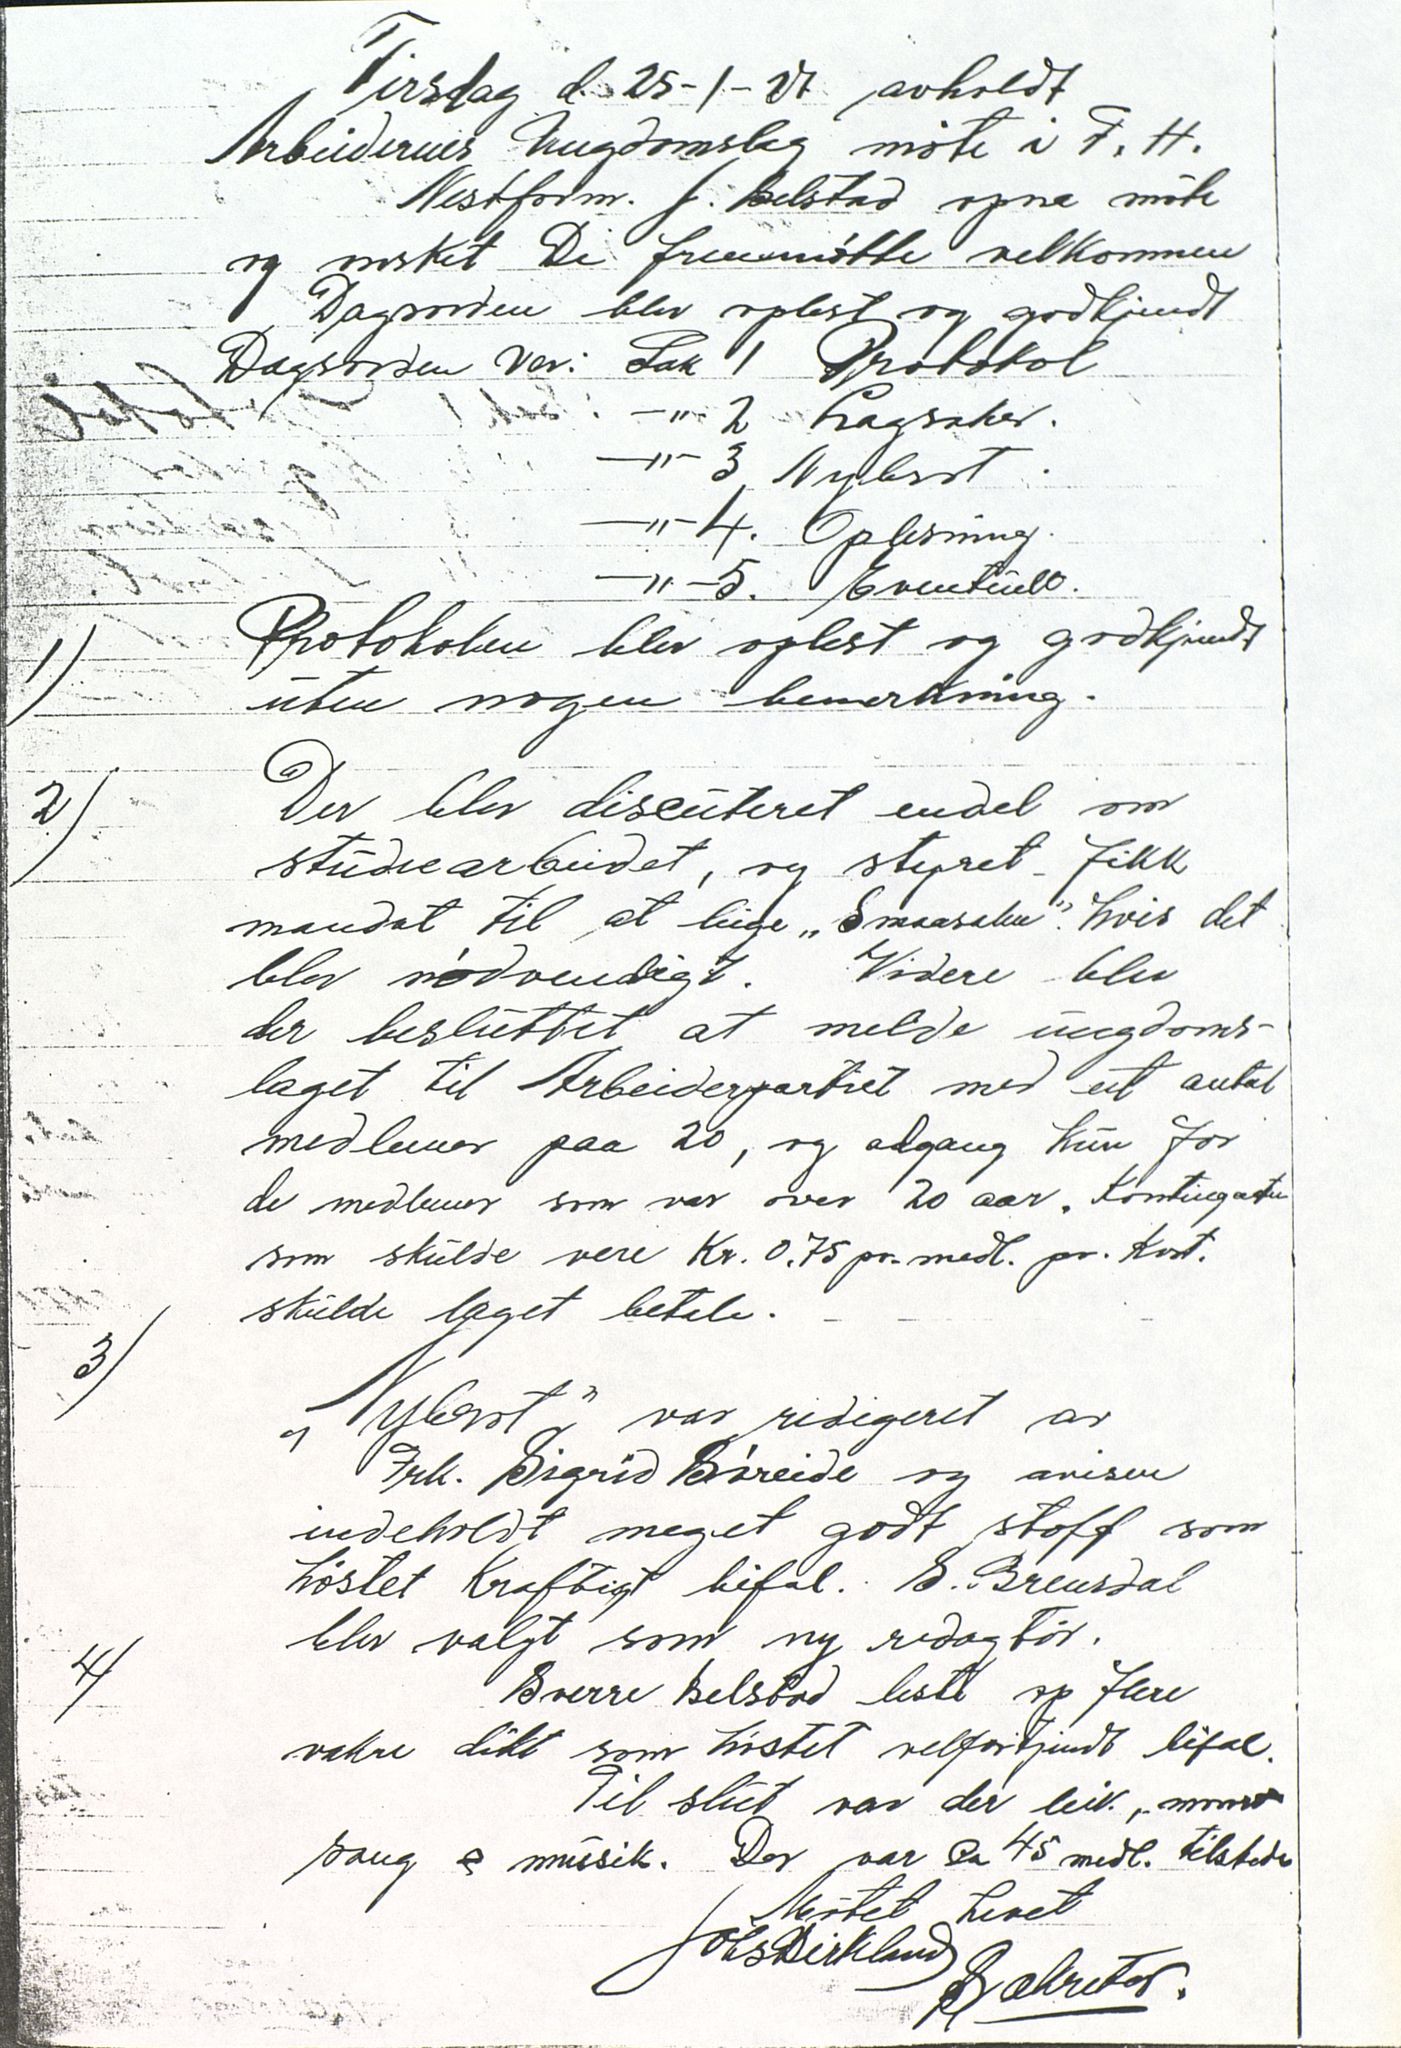 Tirsdag d. 25-1-27 avholdt
Arbeidernes Ungdomslag møte i F. H.
Nestform. J. Belstad opna møte
og ønsket De fremmøtte velkommen
Dagsorden blev oplest og godkjendt
Dagsorden var: Sak 1 Protokol
—"— 2 Lagsaker.
—"— 3 Nybrot.
—"— 4. Oplesning.
—"— 5. Eventuelt.
1) Protokolen blev oplest og godkjendt
uten nogen bemerkning.
2) Der blev discuteret endel om
studiearbeidet, og styret fikk
mandat til at leige „Smaasalen". hvis det
blev nødvendigt. Videre blev
der besluttet at melde ungdoms-
laget til Arbeiderpartiet med eit antal
medlemer paa 20, og adgang kun for
de medlemer som var over 20 aar. Kontingenten
som skulde vere Kr. 0.75 pr. medl. pr. Kvt.
skulde laget betale.
3) „Nybrot" var redigeret av
Frk. Sigrid Søreide og avisen
indeholdt meget godt stoff som
høstet kraftigt bifal. S. Brensdal
blev valgt som ny redagtør.
4) Sverre Belstad leste op flere
vakre dikt som høstet velfortjendt bifal.
Til slut var der leik,
sang & mussik. Der var ca 45 medl. tilstede
Møtet hevet
Johs Birkland
Sekretær.